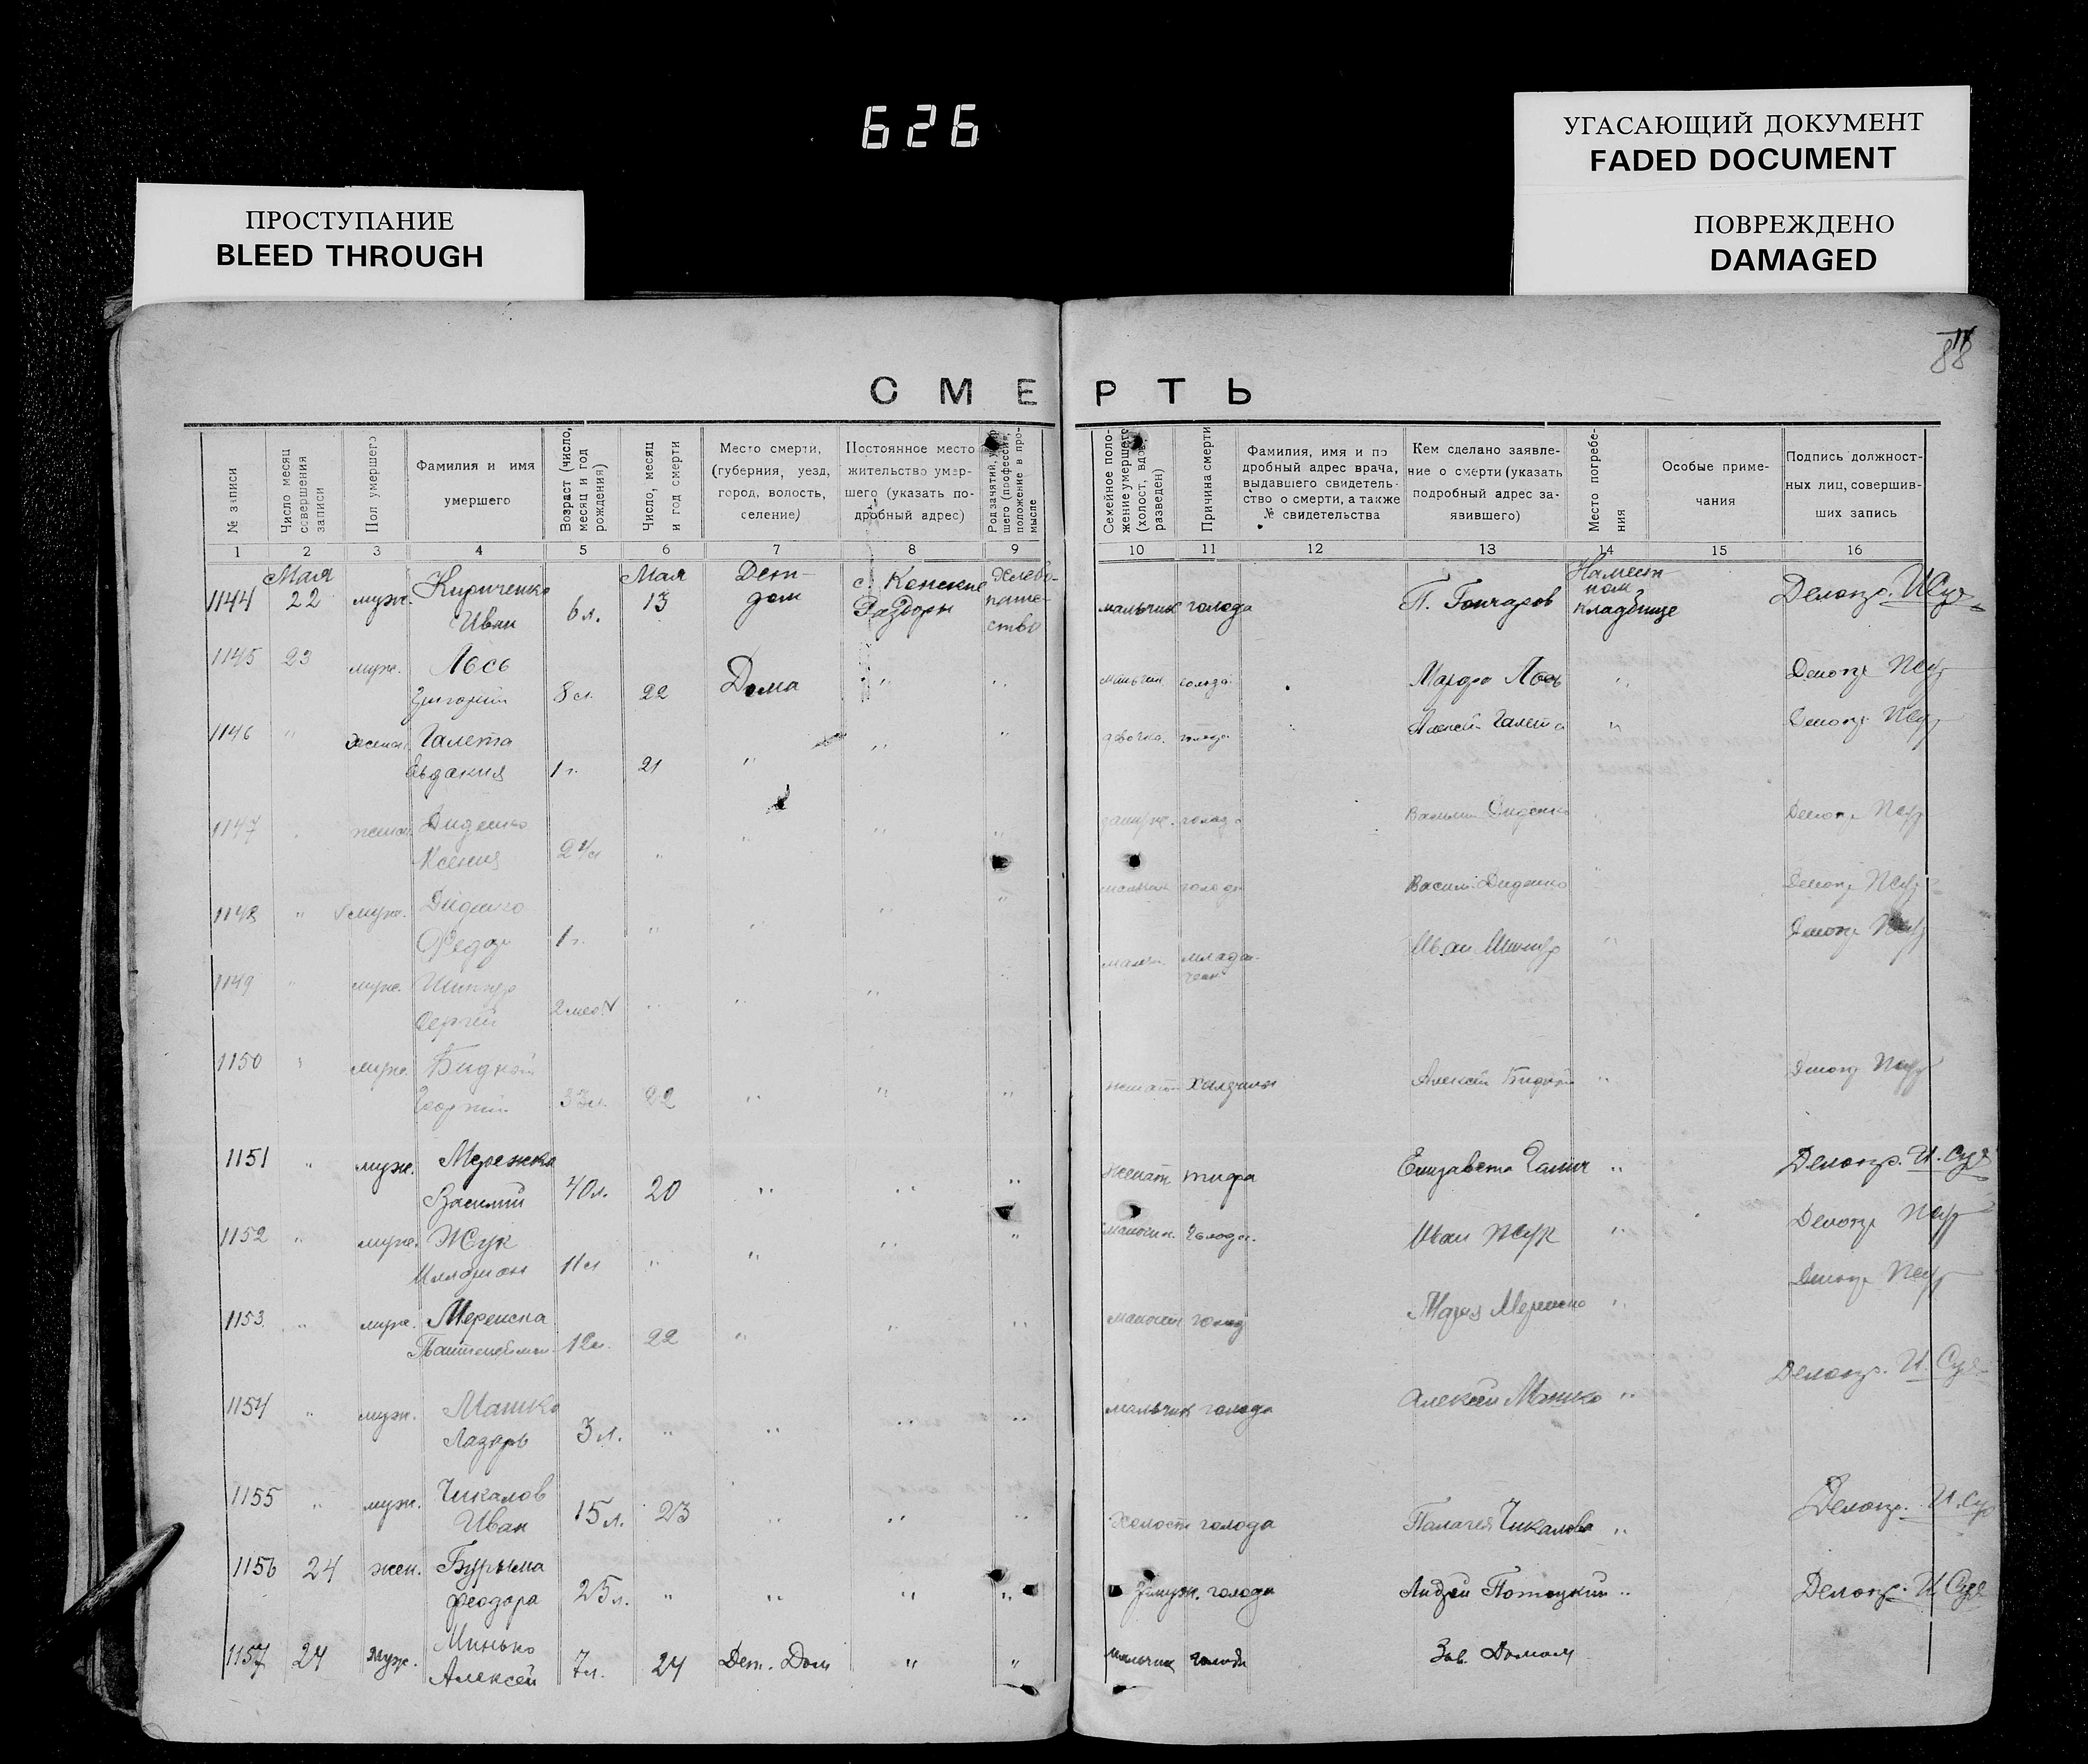 626
УГАСАЮЩИЙ ДОКУМЕНТ
FADED DOCUMENT
ПОВРЕЖДЕНО
DAMAGED
ПРОСТУПАНИЕ
BLEED THROUGH
88
СМЕРТЬ
№ записи
Число месяц совершения записи
Пол умершего
Фамилия и имя умершего
Возраст (число, месяц и год рождения)
Число, месяц и год смерти
Место смерти, (губерния, уезд, город, волость, селение)
Постоянное место жительство умершего (указать подробный адрес)
Род занятий, умершего (профессия, положение в промысле
Семейное положение умершего (холост, вдов, разведен)
Причина смерти
Фамилия, имя и подробный адрес врача, выдавшего свидетельство о смерти, а также № свидетельства
Кем сделано заявление о смерти (указать подробный адрес заявившего)
Место погребения
Особые примечания
Подпись должностных лиц, совершивших запись
1 2 3 4 5 6 7 8 9 10 11 12 13 14 15 16
1144 Мая 22 муж. Кириченко Иван 6 л. Мая 13 Дет-дом с. Конские Раздоры Хлебопаше-ство мальчик голода П. Гончаров На мест-ном кладбище Делопр. И Суя
1145 23 муж. Лось Григорий 8 л. 22 Дома " " мальчик голода Марфа Лось " Делопр
1146 " женск. Галета Евдакия 1 г. 21 " " " девочка голода Алексей Галета " Делопр
1147 " женск. Диденко Ксения " " " " замуж. голода Василий Диденко " Делопр
1148 " муж. Диденко Федор 1 г. " " " " мальчик голода Васил. Диденко " Делопр
1149 " муж. Сергей 2 мес " " " мальч. Иван " Делопр
1150 " муж. Бидный Георгий 22 " " " женатый Алексей Бидный " Делопр
1151 " муж. Мережко Василий 40 л. 20 " " " женат тифа Елизавета " Делопр. И. Суя
1152 " муж. Жук Илларион 11 л " " " " голода. Иван Жук " Делопр
1153 " муж. Пантелеймон 12 л. 22 " " " голод Мария " Делопр
1154 " муж. Машко Лазарь 3 л. " " " " мальчик голода Алексей Машко " Делопр. И Суя
1155 " муж. Чикалов Иван 15 л. 23 " " " Холост голода Палагея Чикалова " Делопр. И. Суя
1156 24 жен. Бурыма Феодора 25 л. " " " " Замуж. голода Андрей Потоцкий " Делопр. И Суя
1157 24 Муж. Минько Алексей 7 л. 24 Дет. Дом " " мальчик голода Зав. Домом